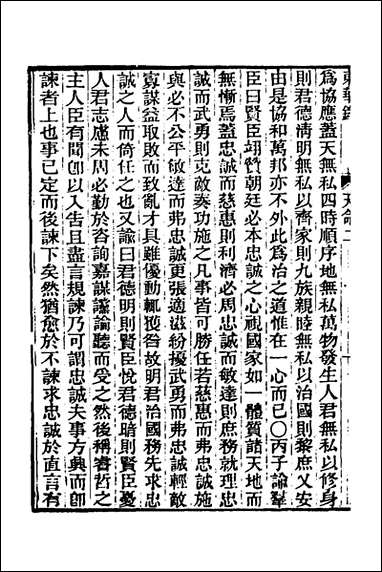 東華錄 天命二
爲協應蓋天無私四時順序地無私萬物發生人君無私以修身
則君德清明無私以齊家則九族親睦無私以治國則黎庶乂安
由是協和萬邦亦不外此爲治之道惟在一心而已○丙子諭羣
臣曰賢臣翊贊朝廷必本忠誠之心視國家如一體質諸天地而
無慚焉蓋忠誠而慈惠則利濟必周忠誠而敏達則庶務就理忠
誠而武勇則克敵奏功施之凡事皆可勝任若慈惠而弗忠誠施
與必不公平敏達而弗忠誠更張適滋紛擾武勇而弗忠誠輕敵
寡謀益取敗而致亂才具雖優動輒獲咎故明君治國務先求忠
誠之人而倚任之也又諭曰君德明則賢臣悅君德暗則賢臣憂
人君志慮未周必勤於咨詢嘉謀讜論聽而受之然後稱睿哲之
主人臣有聞卽以入告且盡言規諫乃可謂忠誠夫事方興而卽
諫者上也事已定而後諫下矣然猶愈於不諫求忠誠於直言有